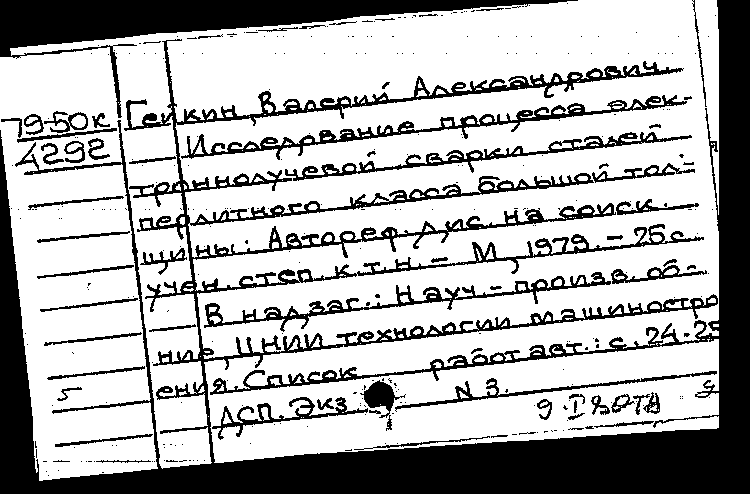 79-50к Гейкин, Валерий Александрович.
4292 Исследование процесса элек-
троннолучевой сварки сталей
перлитного класса большой тол-
щины: Автореф. дис. на соиск.
учен. степ. к.т.н. - М, 1979. - 25 с.
В надзаг.: Науч.- произв. об-
ние, ЦНИИ технологии машиностро
ения. Список работ авт.: с. 24-25
5 ДСП. Экз N 3.